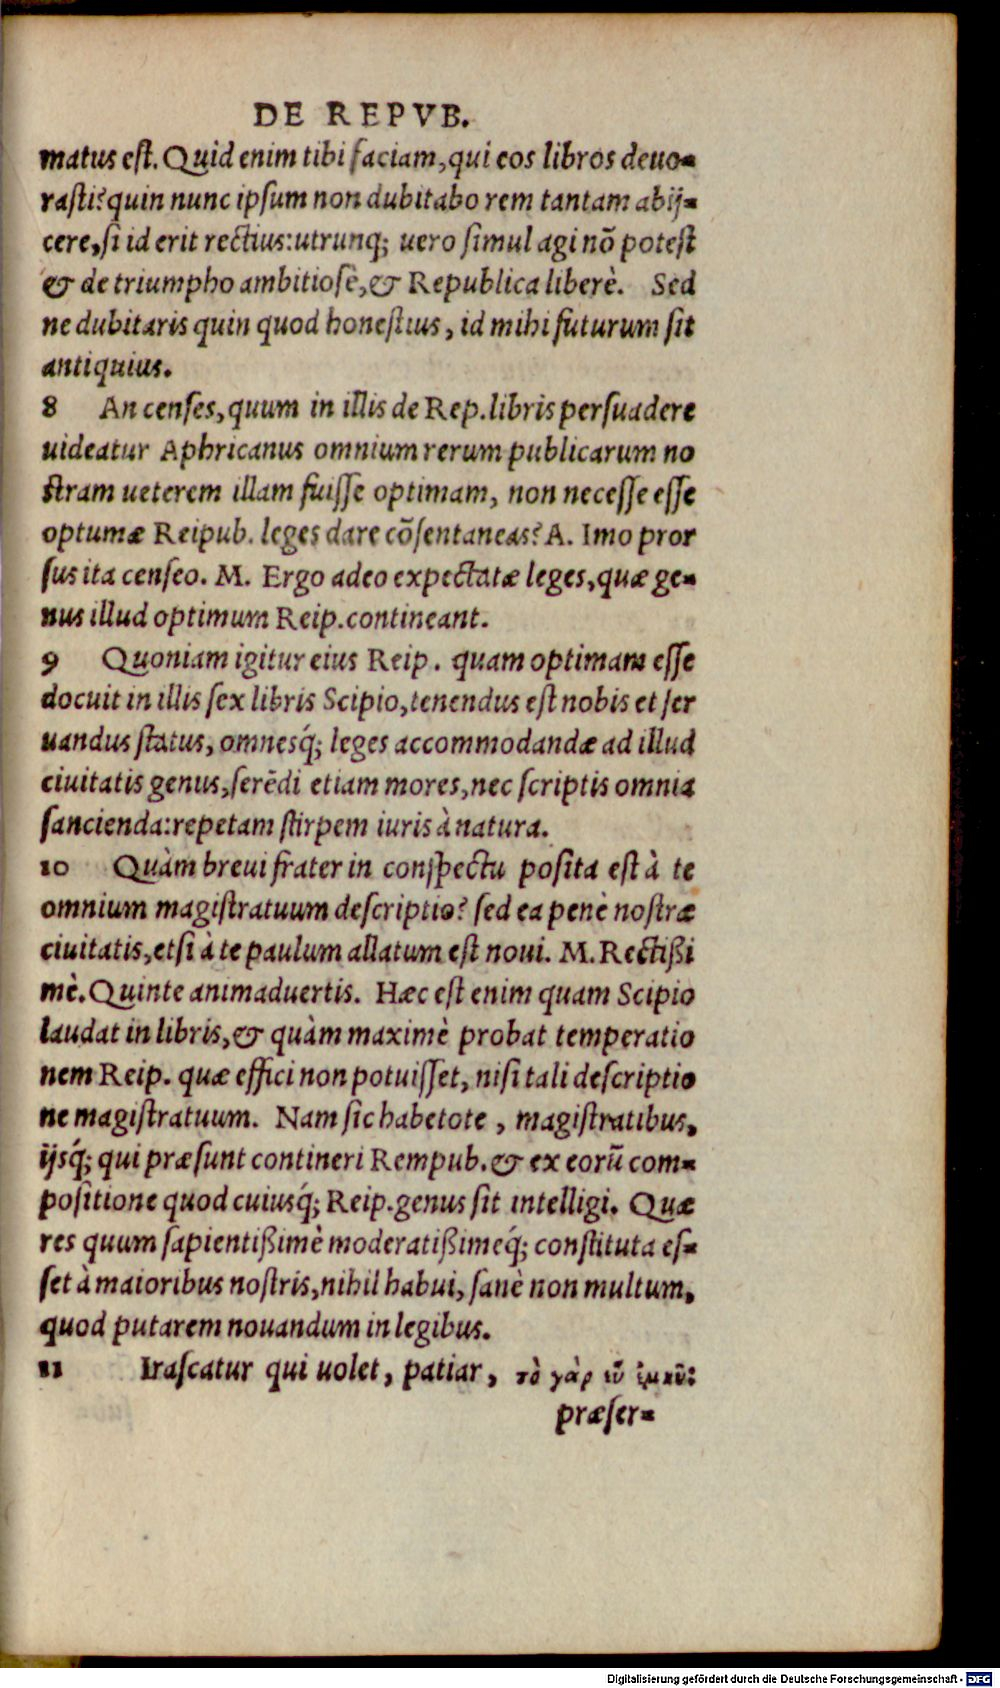 DE REPVB.
matus est. Quid enim tibi faciam, qui eos libros deuo-
rasti? quin nunc ipsum non dubitabo rem tantam abij-
cere, si id erit rectius: utrunq; uero simul agi nõ potest
& de triumpho ambitiosè, & Republica liberè. Sed
ne dubitaris quin quod honestius, id mihi futurum sit
antiquius.
8 An censes, quum in illis de Rep. libris persuadere
uideatur Aphricanus omnium rerum publicarum no
stram ueterem illam fuisse optimam, non necesse esse
optumæ Reipub. leges dare cõsentaneas? A. Imo pror
sus ita censeo. M. Ergo adeo expectatæ leges, quæ ge-
nus illud optimum Reip. contineant.
9 Quoniam igitur eius Reip. quam optimam esse
docuit in illis sex libris Scipio, tenendus est nobis et ser
uandus status, omnesq́; leges accommodandæ ad illud
ciuitatis genus, serẽdi etiam mores, nec scriptis omnia
sancienda: repetam stirpem iuris à natura.
10 Quàm breui frater in conspectu posita est à te
omnium magistratuum descriptio? sed ea penè nostræ
ciuitatis, etsi à te paulum allatum est noui. M. Rectißi
mè. Quinte animaduertis. Hæc est enim quam Scipio
laudat in libris, & quàm maximè probat temperatio
nem Reip. quæ effici non potuisset, nisi tali descriptio
ne magistratuum. Nam sic habetote, magistratibus,
ijsq́; qui præsunt contineri Rempub. & ex eorũ com-
positione quod cuiusq́; Reip. genus sit intelligi. Quæ
res quum sapientißimè moderatißimeq́; constituta es-
set à maioribus nostris, nihil habui, sanè non multum,
quod putarem nouandum in legibus.
11 Irascatur qui uolet, patiar, τὸ γὰρ
præser-
Digitalisierung gefördert durch die Deutsche Forschungsgemeinschaft - DFG